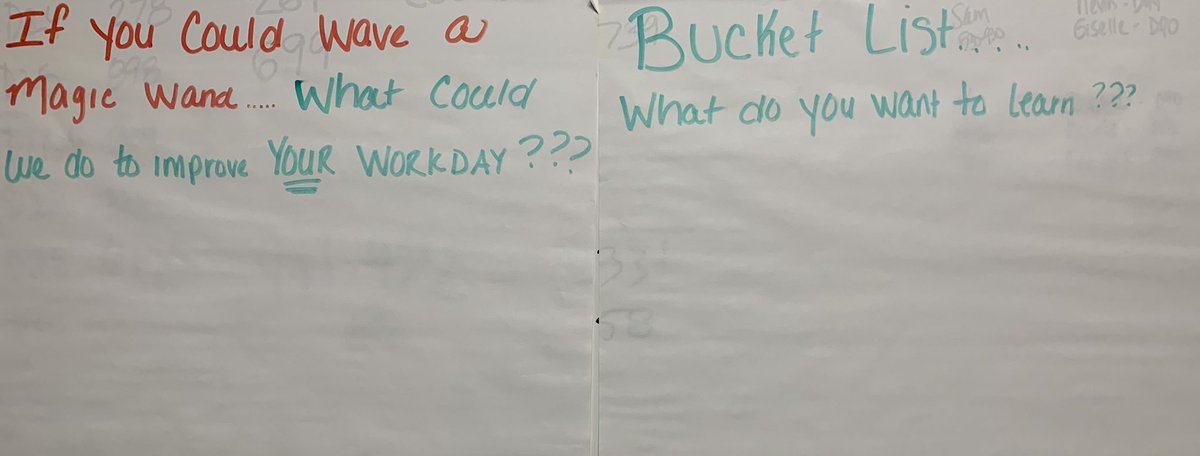 If you Could Wave a
Magic Wand..... What Could
we do to improve YOUR WORKDAY ???
Bucket List.....
What do you want to learn ???
Sam
Giselle - D90